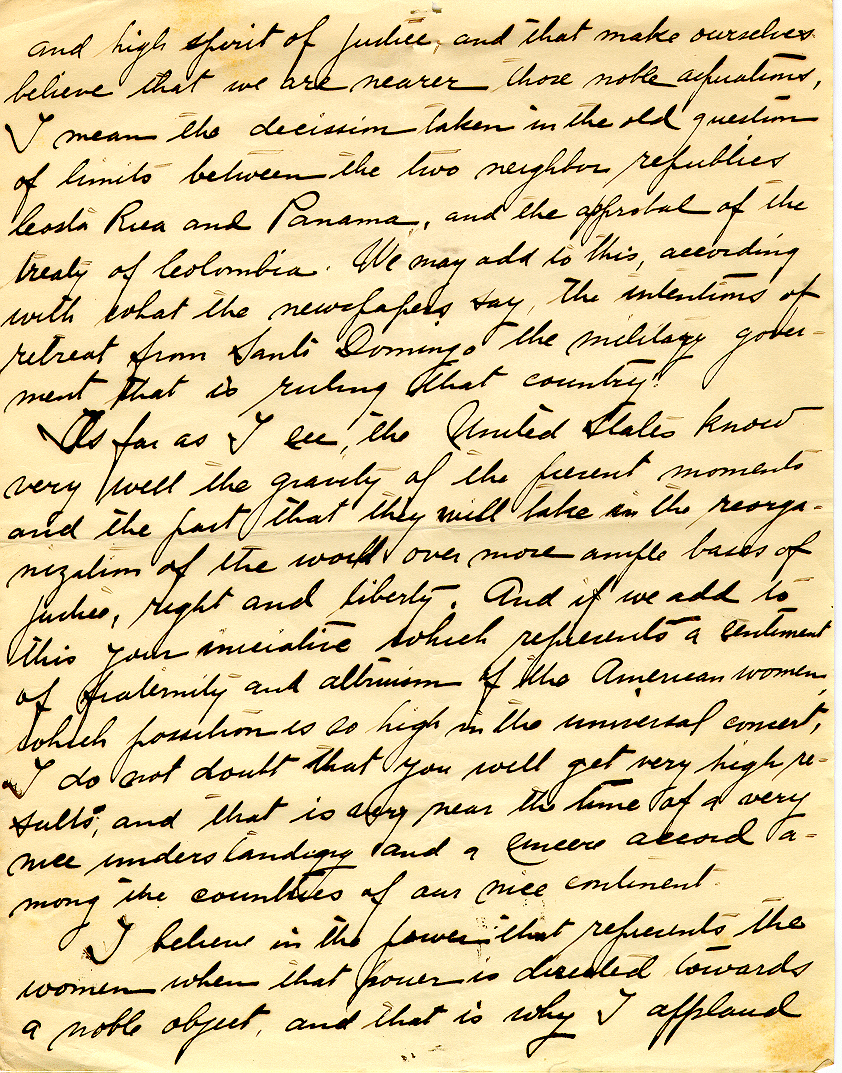 and high spirit of justice, and that make ourselves
believe that we are nearer those noble aspirations,
I mean the decission taken in the old question
of limits between the two neighbor republics
Costa Rica and Panama, and the approbal of the
treaty of Colombia. We may add to this, according
with what the newspapers say, the intentions of
retreat from Santo Domingo the military gover-
ment that is ruling that country.
As far as I see, the United States know
very well the gravity of the present moments
and the part that they will take in the reorga-
nization of the world over more ample bases of
justice, right and liberty. And if we add to
this your iniciative which represents a sentiment
of fraternity and altruism of the American women,
which possition is so high in the universal concert,
I do not doubt that you will get very high re-
sults, and that is very near the time of a very
nice understanding and a sincere accord a-
mong the countries of our nice continent.
I believe in the power that represents the
women when that power is directed towards
a noble object, and that is why I applaud